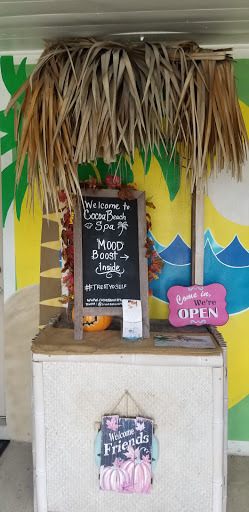 Welcome to
CocoaBeach
Spa
MOOD
BOOST →
Inside
#TREATYOSELF
Come in,
We're
OPEN
Welcome
Friends